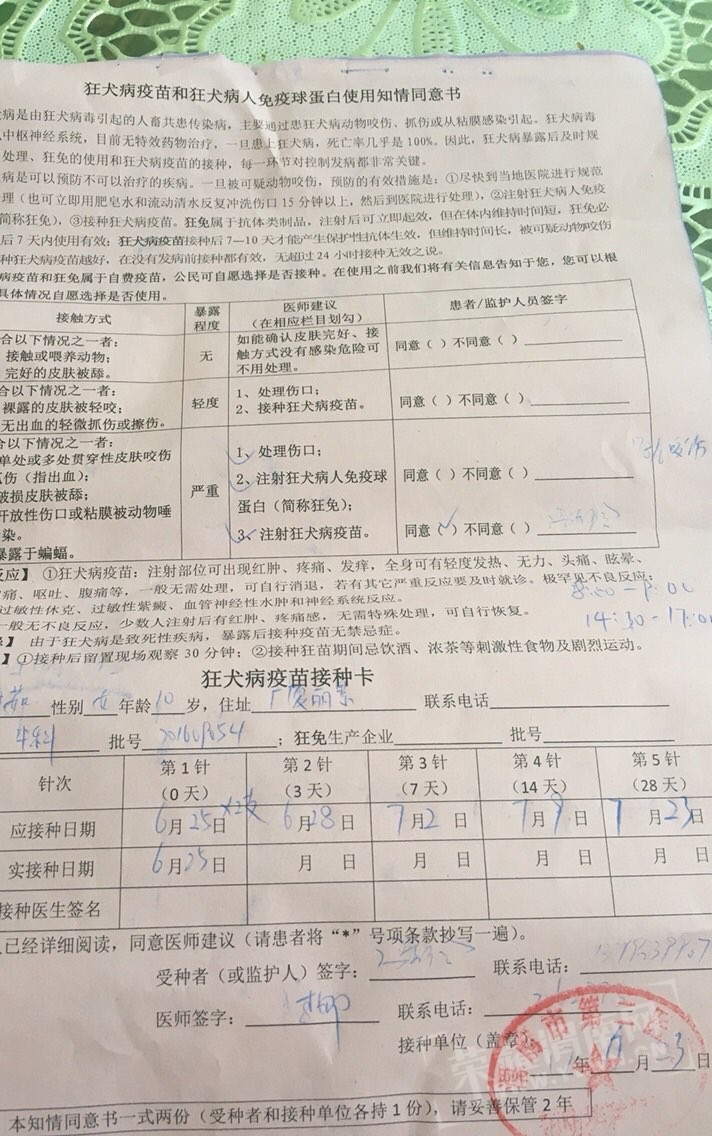 狂犬病疫苗和狂犬病人免疫球蛋白使用知情同意书
病是由狂犬病毒引起的人畜共患传染病，主要通过患狂犬病动物咬伤、抓伤或从粘膜感染引起。狂犬病毒
中枢神经系统，目前无特效药物治疗，一旦患上狂犬病，死亡率几乎是100%。因此，狂犬病暴露后及时规
处理、狂免的使用和狂犬病疫苗的接种，每一环节对控制发病都非常关键。
病是可以预防不可以治疗的疾病。一旦被可疑动物咬伤，预防的有效措施是：①尽快到当地医院进行规范
理（也可立即用肥皂水和流动清水反复冲洗伤口15分钟以上，然后到医院进行处理），②注射狂犬病人免疫
简称狂免），③接种狂犬病疫苗。狂免属于抗体类制品，注射后可立即起效，但在体内维持时间短，狂免必
后7天内使用有效；狂犬病疫苗接种后7—10天才能产生保护性抗体生效，但维持时间长，被可疑动物咬伤
种狂犬病疫苗越好，在没有发病前接种都有效，无超过24小时接种无效之说。
病疫苗和狂免属于自费疫苗，公民可自愿选择是否接种。在使用之前我们将有关信息告知于您，您可以根
具体情况自愿选择是否使用。
接触方式 暴露程度 医师建议（在相应栏目划勾） 患者/监护人员签字
合以下情况之一者：
接触或喂养动物；
完好的皮肤被舔。
无
如能确认皮肤完好、接
触方式没有感染危险可
不用处理。
同意（ ）不同意（ ）
合以下情况之一者：
裸露的皮肤被轻咬；
无出血的轻微抓伤或擦伤。
轻度
1、处理伤口；
2、接种狂犬病疫苗。
同意（ ）不同意（ ）
合以下情况之一者：
单处或多处贯穿性皮肤咬伤
伤（指出血）；
破损皮肤被舔；
开放性伤口或粘膜被动物唾
染。
暴露于蝙蝠。
严重
1、处理伤口；
2、注射狂犬病人免疫球
蛋白（简称狂免）；
3、注射狂犬病疫苗。
同意（ ）不同意（ ）
同意（✓）不同意（ ）
咬伤
反应】 ①狂犬病疫苗：注射部位可出现红肿、疼痛、发痒，全身可有轻度发热、无力、头痛、眩晕、
痛、呕吐、腹痛等，一般无需处理，可自行消退，若有其它严重反应要及时就诊。极罕见不良反应：
过敏性休克、过敏性紫癜、血管神经性水肿和神经系统反应。
一般无不良反应，少数人注射后有红肿、疼痛感，无需特殊处理，可自行恢复。
14:30-17:00
】 由于狂犬病是致死性疾病，暴露后接种疫苗无禁忌症。
】①接种后留置现场观察30分钟；②接种狂苗期间忌饮酒、浓茶等刺激性食物及剧烈运动。
狂犬病疫苗接种卡
性别 女 年龄 10 岁，住址 联系电话
批号 ；狂免生产企业 批号
针次 第1针（0天） 第2针（3天） 第3针（7天） 第4针（14天） 第5针（28天）
应接种日期 6月25日 6月28日 7月2日 7月9日 7月23日
实接种日期 6月25日 月 日 月 日 月 日 月 日
接种医生签名
已经详细阅读，同意医师建议（请患者将“*”号项条款抄写一遍）。
受种者（或监护人）签字： 联系电话：
医师签字： 联系电话：
接种单位（盖章）：
年 月 日
本知情同意书一式两份（受种者和接种单位各持1份），请妥善保管2年